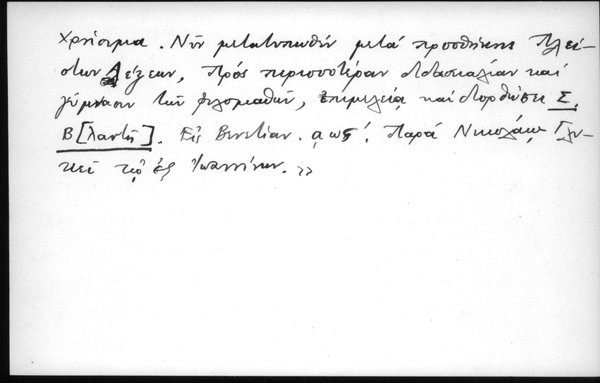 χρήσιμα. Νῦν μετατυπωθὲν μετὰ προσθήκης πλεί-
στων λέξεων, πρὸς περισσοτέραν διδασκαλίαν καὶ
γύμνασιν τῶν φιλομαθῶν, ἐπιμελείᾳ καὶ διορθώσει Σ.
Β[λαντῆ]. Ἐν Βενετίαν. Παρὰ Νικολάῳ Γλυ-
κεῖ τῷ ἐξ Ἰωαννίνων.»